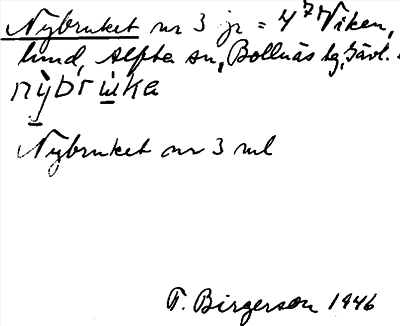 Nybruket nr 3 jr = 4⁷⁷ Viken,
lund, Alfta sn, Bollnäs tg, Gävl.
nybruka
Nybruket nr 3 ml
F. Birgerson 1946